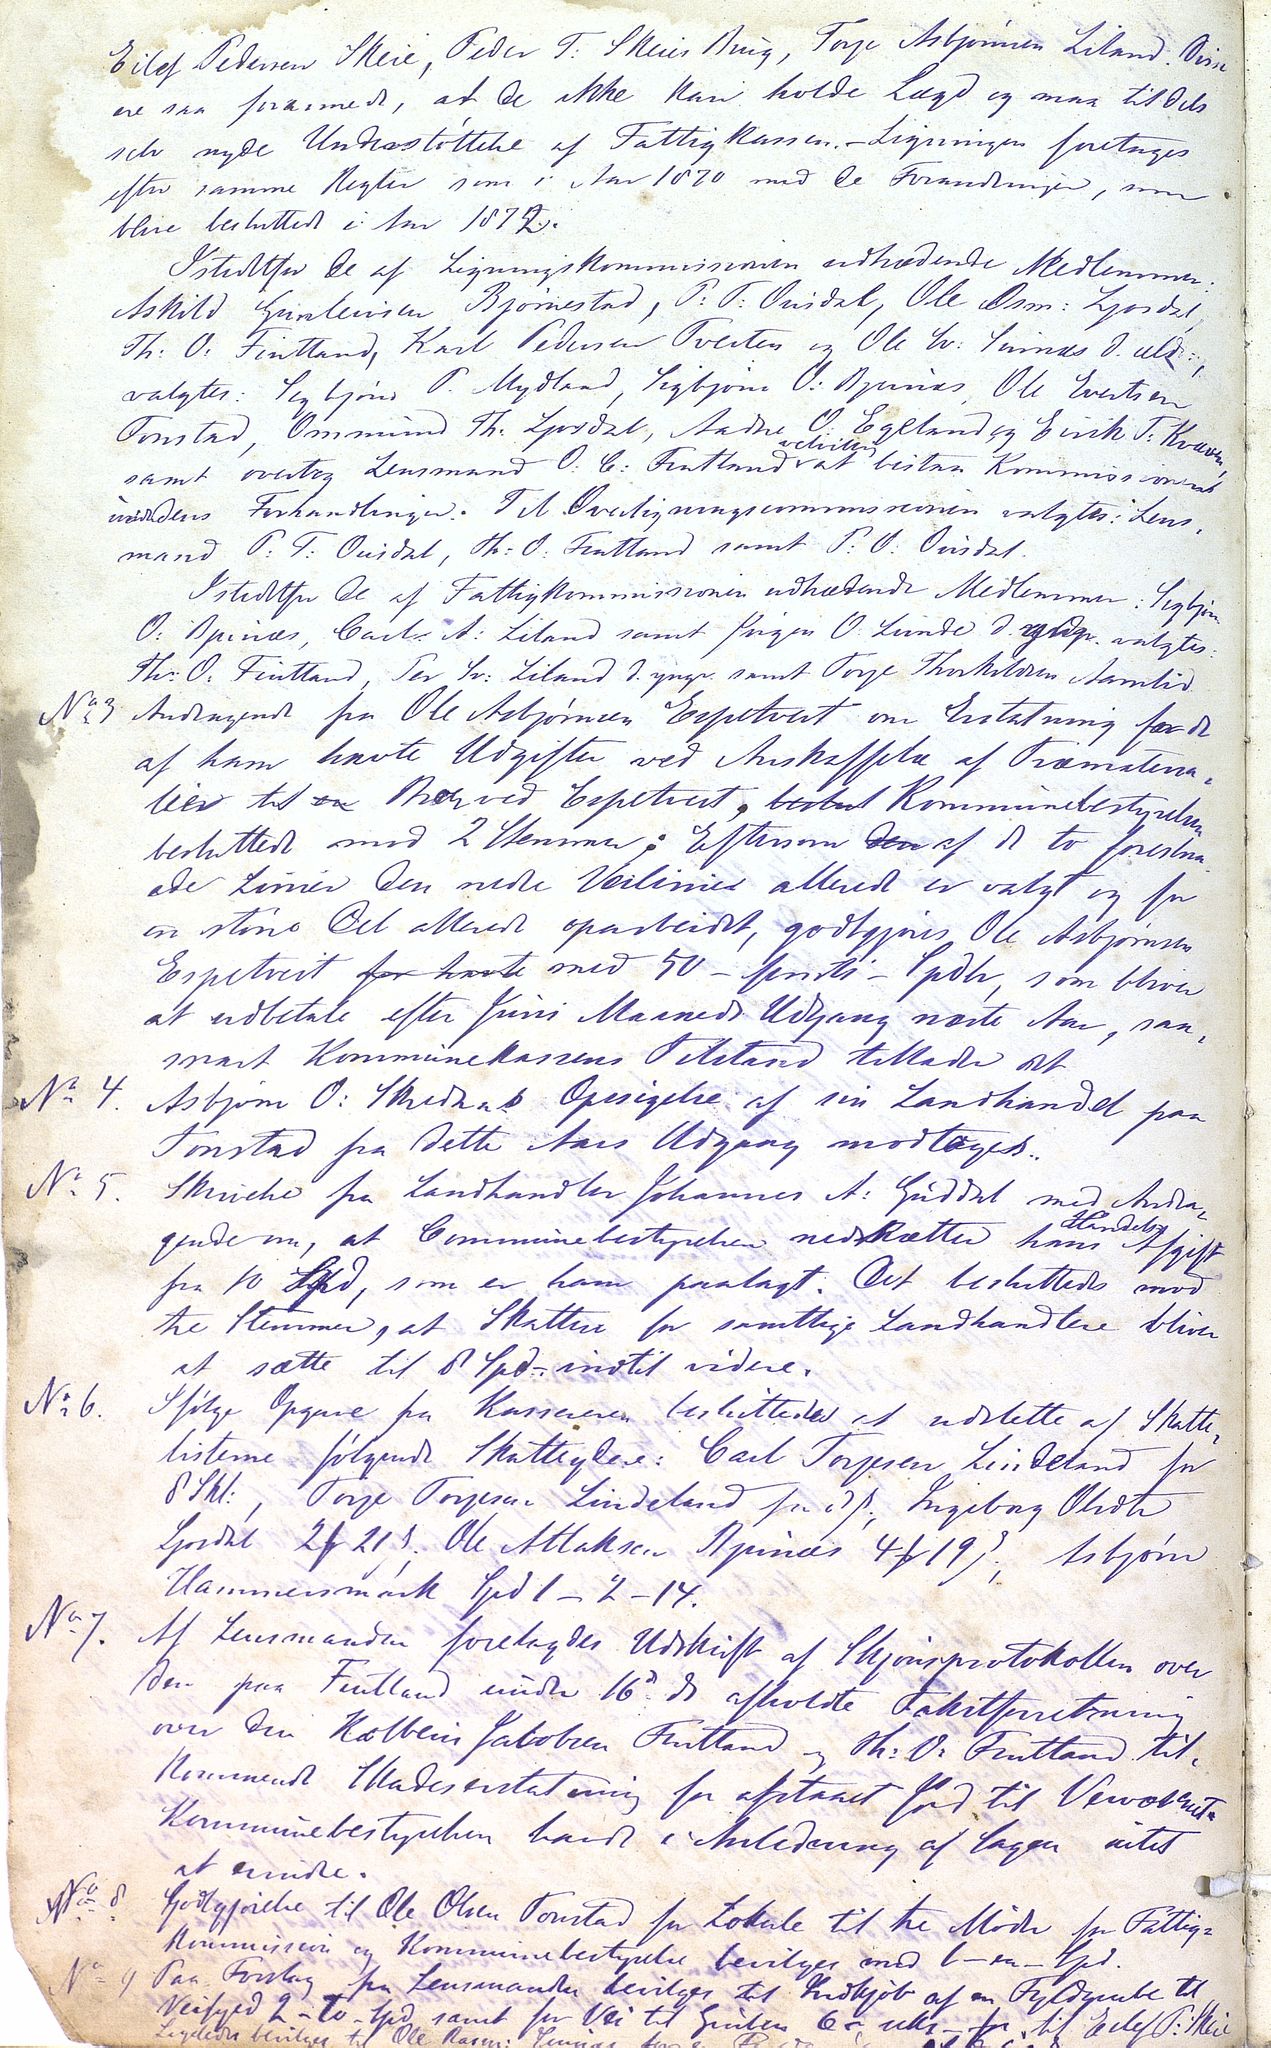 Eilef Pedersen Skeie, Peder T: Skeies Brug, Torge Asbjørnsen Liland. Disse
ere saa forarmede, at de ikke kan holde Lægd og maa tildels
selv nyde Understøttelse af Fattigkassen. – Ligningen foretages
efter samme Regler som i Aar 1870 med de Forandringer, som
blive besluttede i Aar 1872.
Istedetfor de af Ligningskommissionen udtrædende Medlemmer:
Askild Gunleivsen Bjørnestad, P: T: Ousdal, Ole Osm: Ljosdal,
Th: O: Fintland, Karl Pedersen Tveiten og Ole Sv: Sinnæs d. æld:,
valgtes: Sigbjørn P. Mydland, Sigbjørn O: Øpinæs, Ole Evertsen
Tonstad, Ommund Th. Ljosdal, Aadne O. Egeland og Eirik T: Kvæven,
samt overtog Lensmand O. E: Fintland velvilligt at bistaa Kommissionen
Forhandlinger. Til Overligningscommissionen valgtes: Lens,
mand P: T: Ousdal, Th: O. Fintland samt P. O: Ousdal.
Istedetfor de af Fattigkommissionen udtrædende Medlemmer: Sigbjørn
O: Øpinæs, Carl A: Liland samt Jørgen O Lunde d. yngr. valgtes:
Th: O. Fintland, Per Sv: Liland d. yngr. samt Torge Thorkildsen Aamlid.
No 3 Andragende fra Ole Asbjørnsen Espetveit om Erstatning for de
af ham havte Udgifter ved Anskaffelse af Træmateria,
lier til en Bro ved Espetveit, beslut Kommunebestyrelsen
besluttede mod 2 Stemmer: Eftersom den af de to foreslaa
ede Linier den nedre Veilinie allerede er valgt og for
en større Del allerede oparbeidet, godtgjøres Ole Asbjørnsen
Espetveit for havte med 50 – femti – Spdlr, som bliver
at udbetale efter Juni Maaneds Udgang næste Aar, saa,
snart Kommunekassens Tilstand tillader det
No 4. Asbjørn O: Skredaas Opsigelse af sin Landhandel paa
Tonstad fra dette Aars Udgang modtages.
No 5. Skrivelse fra Landhandler Johannes A: Guddal med Andra,
gende om, at Communebestyrelsen nedsætter hans Handels Afgift
fra 10 Spd, som er ham paalagt. Det besluttedes mod
tre Stemmer, at Skatten for samtlige Landhandlere bliver
at sætte til 8 Spd – indtil videre.
No 6. Ifølge Opgave fra Kassereren besluttedes at udslette af Skatte,
listerne følgende Skatteydere: Carl Torgesen Lindeland for
8 Skl:, Torge Torgesen Lindeland for Ingeborg Olsdtr
Ljosdal 2 21 Ole Atlaksen Øpinæs 4 19 Asbjørn
Hammersmark Spd 1 – 2 – 14.
No 7. Af Lensmanden foretagdes Udskrift af Skjønsprotokollen over
den paa Fintland under 16d ds afholdte Takstforretning
over den Kolbein Jakobsen Fintland og Th: O: Fintland til,
kommende Skadeserstatning for afstaaet Jord til
Kommunebestyrelsen havde i Anledning af Sagen intet
at erindre.
No 8. Godtgjørelse til Ole Olsen Tonstad for Lokale til tre Møder for Fattig-
kommission og Kommunebestyrelse bevilges med 1 – en – Spd.
No 9 Paa Forslag fra Lensmanden bevilges til Indkjøb af en Fyldgrube til
Veifyld 2 – to – Spd samt for Vei til Gruben til Eilef P: Skeie
Ligeledes bevilges til Ole Rasm: Sinnæs